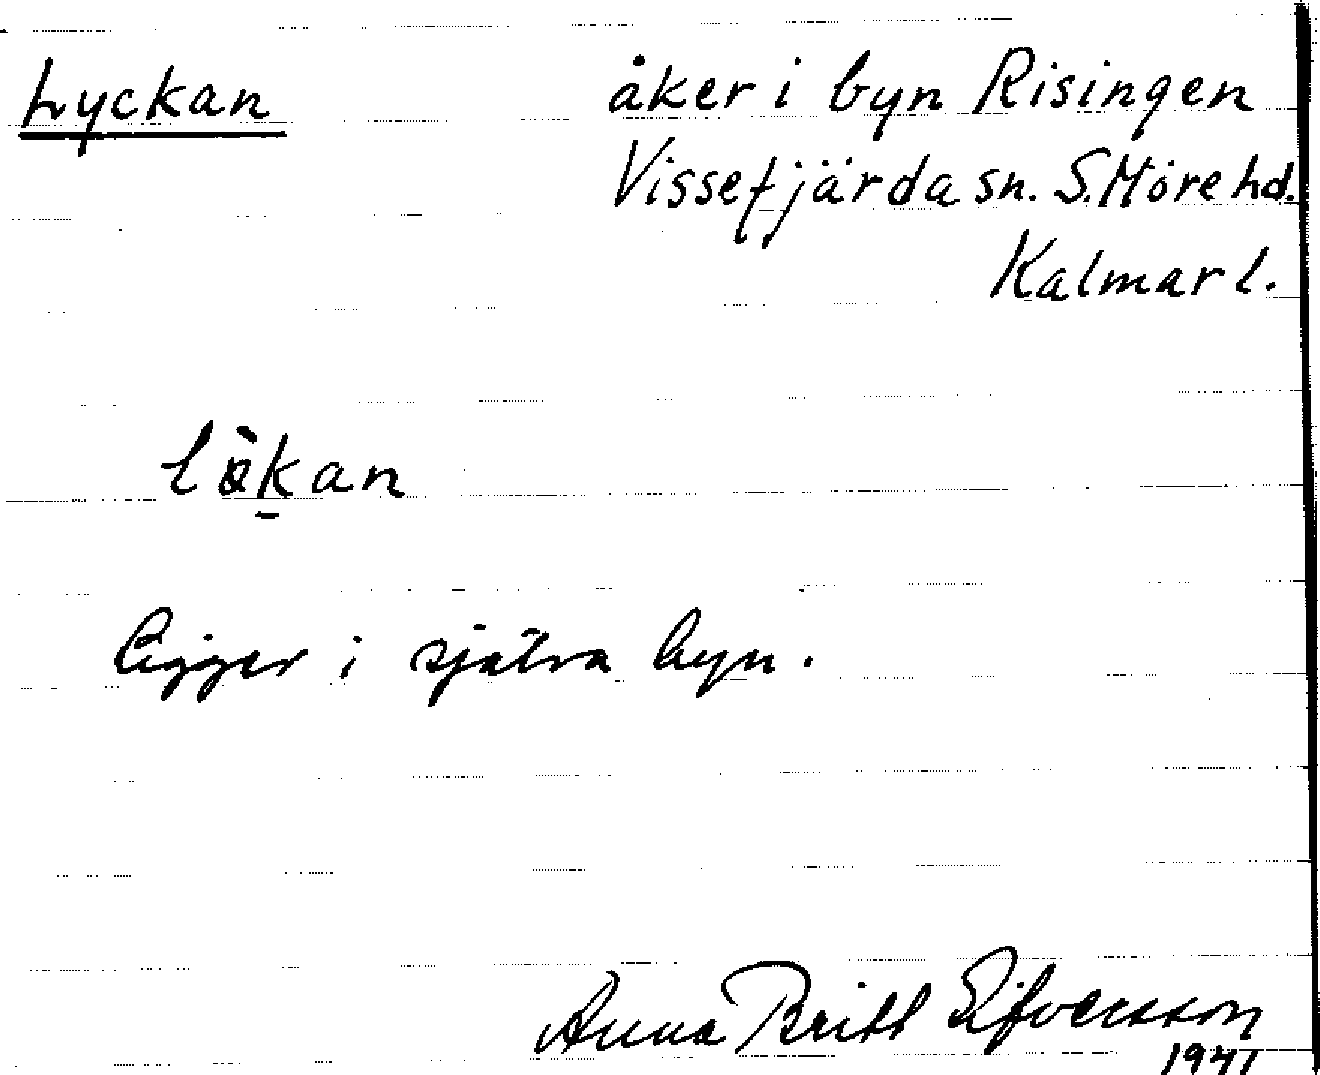 Lyckan åker i byn Risingen
Vissefjärda sn. S. Möre hd.
Kalmar l.
lökan
ligger i själva byn.
Anna Britt Sifversson
1941